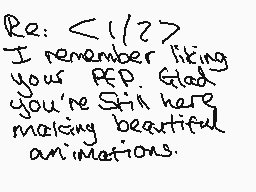 Re: <1/2>
I remember liking
your PFP. Glad
you're Still here
making beautiful
animations.